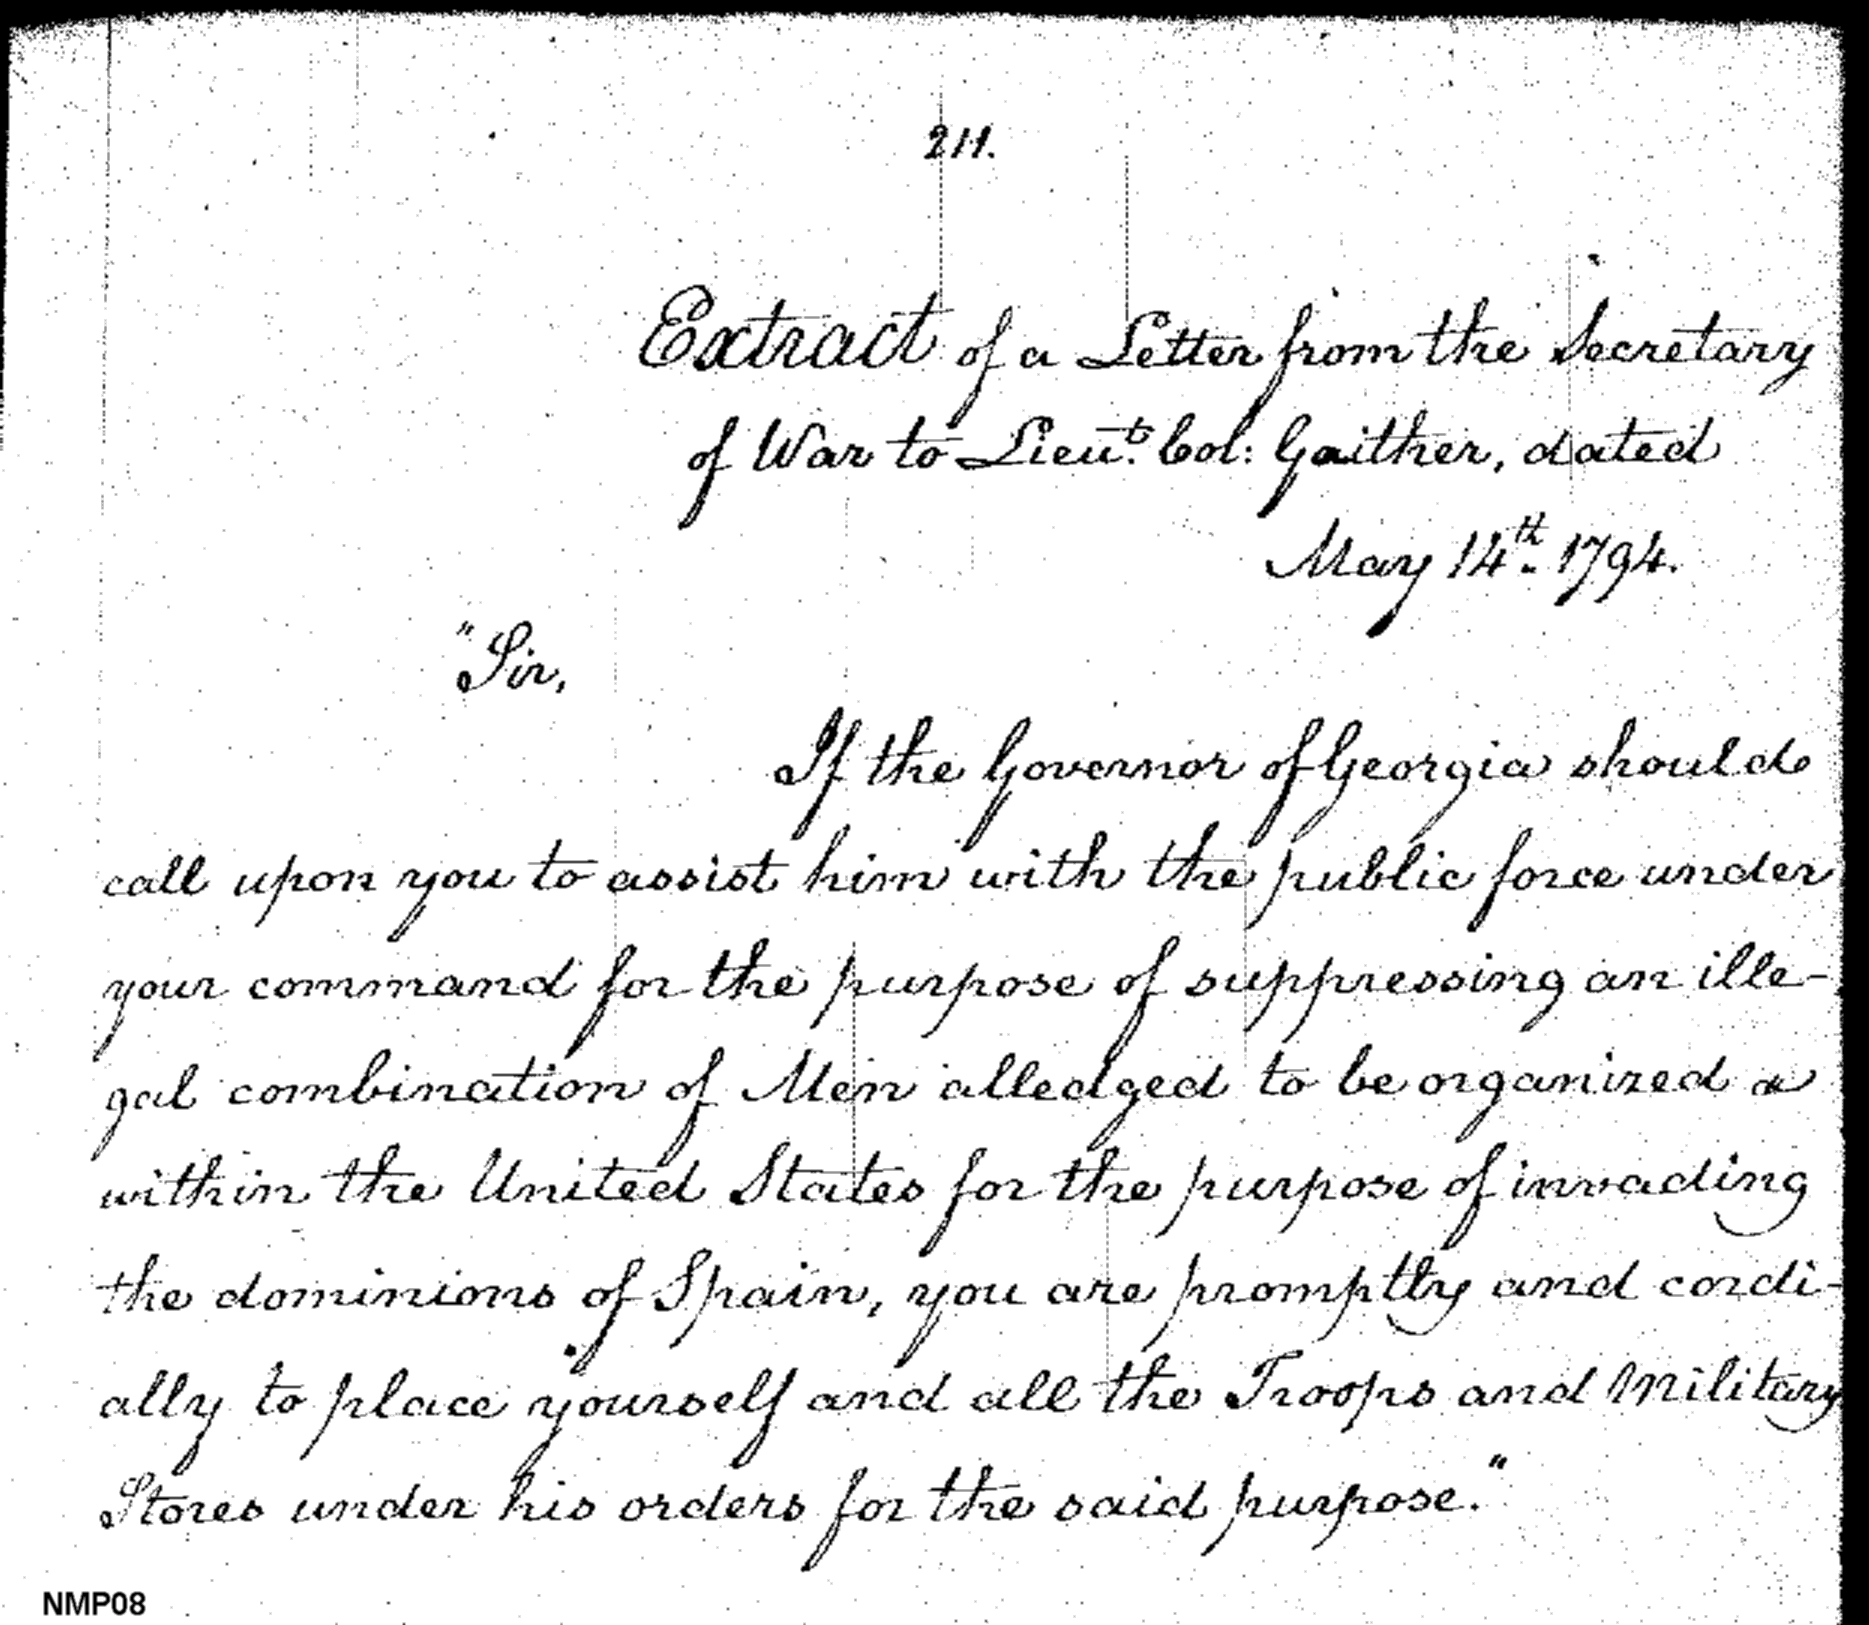 211.
Extract of a Letter from the Secretary
of War to Lieut. Col: Gaither, dated
May 14th. 1794.
"Sir,
If the Governor of Georgia should
call upon you to assist him with the public force under
your command for the purpose of suppressing an ille-
gal combination of Men alledged to be organized a
within the United States for the purpose of invading
the dominions of Spain, you are promptly and cordi-
ally to place yourself and all the Troops and Military
Stores under his orders for the said purpose."
NMP08